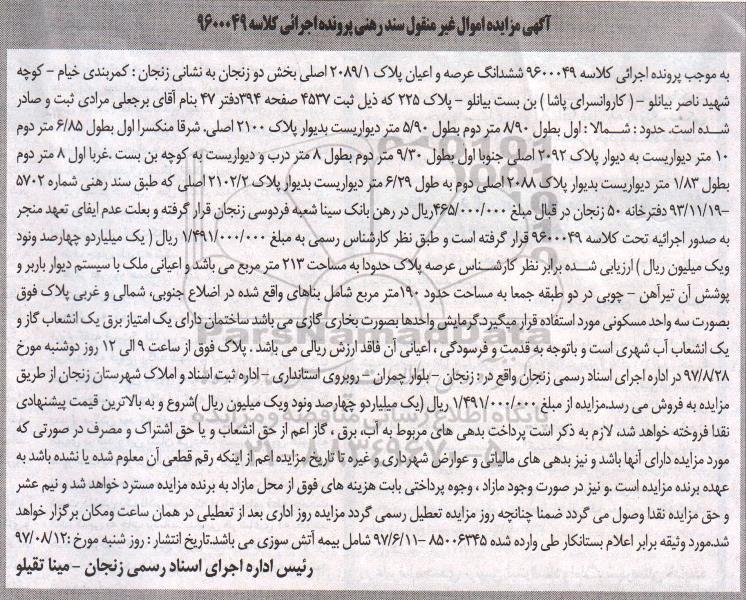 آگهی مزایده اموال غیر منقول سند رهنی پرونده اجرائی کلاسه ۹۶۰۰۰۴۹
به موجب پرونده اجرائی کلاسه ۹۶۰۰۰۴۹ ششدانگ عرصه و اعیان پلاک ۲۰۸۹/۱ اصلی بخش دو زنجان به نشانی زنجان : کمربندی خیام – کوچه
شهید ناصر بیانلو – ( کاروانسرای پاشا ) بن بست بیانلو – پلاک ۲۲۵ که ذیل ثبت ۴۵۳۷ صفحه ۳۹۴دفتر ۴۷ بنام آقای برجعلی مرادی ثبت و صادر
شده است. حدود : شمالا : اول بطول ۸/۹۰ متر دوم بطول ۵/۹۰ متر دیواریست بدیوار پلاک ۲۱۰۰ اصلی. شرقا منکسرا اول بطول ۶/۸۵ متر دوم
۱۰ متر دیواریست به دیوار پلاک ۲۰۹۲ اصلی جنوبا اول بطول ۹/۳۰ متر دوم بطول ۸ متر درب و دیواریست به کوچه بن بست .غربا اول ۸ متر دوم
بطول ۱/۸۳ متر دیواریست بدیوار پلاک ۲۰۸۸ اصلی دوم به طول ۶/۲۹ متر دیواریست بدیوار پلاک ۲۱۰۲/۲ اصلی که طبق سند رهنی شماره ۵۷۰۲
–۹۳/۱۱/۱۹ دفترخانه ۵۰ زنجان در قبال مبلغ ۴۶۵/۰۰۰/۰۰۰ریال در رهن بانک سینا شعبه فردوسی زنجان قرار گرفته و بعلت عدم ایفای تعهد منجر
به صدور اجرائیه تحت کلاسه ۹۶۰۰۰۴۹ قرار گرفته است و طبق نظر کارشناس رسمی به مبلغ ۱/۴۹۱/۰۰۰/۰۰۰ ریال ( یک میلیاردو چهارصد ونود
ویک میلیون ریال ) ارزیابی شده برابر نظر کارشناس عرصه پلاک حدودا به مساحت ۲۱۳ متر مربع می باشد و اعیانی ملک با سیستم دیوار باربر و
پوشش آن تیرآهن – چوبی در دو طبقه جمعا به مساحت حدود ۱۹۰متر مربع شامل بناهای واقع شده در اضلاع جنوبی، شمالی و غربی پلاک فوق
بصورت سه واحد مسکونی مورد استفاده قرار میگیرد.گرمایش واحدها بصورت بخاری گازی می باشد ساختمان دارای یک امتیاز برق یک انشعاب گاز و
یک انشعاب آب شهری است و باتوجه به قدمت و فرسودگی ، اعیانی آن فاقد ارزش ریالی می باشد . پلاک فوق از ساعت ۹ الی ۱۲ روز دوشنبه مورخ
۹۷/۸/۲۸ در اداره اجرای اسناد رسمی زنجان واقع در : زنجان – بلوار چمران – روبروی استانداری – اداره ثبت اسناد و املاک شهرستان زنجان از طریق
مزایده به فروش می رسد.مزایده از مبلغ ۱/۴۹۱/۰۰۰/۰۰۰ ریال (یک میلیارد چهارصد ونود ویک میلیون ریال )شروع و به بالاترین قیمت پیشنهادی
نقدا فروخته خواهد شد، لازم به ذکر است پرداخت بدهی های مربوط به آب، برق ، گاز اعم از حق انشعاب و یا حق اشتراک و مصرف در صورتی که
مورد مزایده دارای آنها باشد و نیز بدهی های مالیاتی و عوارض شهرداری و غیره تا تاریخ مزایده اعم از اینکه رقم قطعی آن معلوم شده یا نشده باشد به
عهده برنده مزایده است .و نیز در صورت وجود مازاد ، وجوه پرداختی بابت هزینه های فوق از محل مازاد به برنده مزایده مسترد خواهد شد و نیم عشر
و حق مزایده نقدا وصول می گردد ضمنا چنانچه روز مزایده تعطیل رسمی گردد مزایده روز اداری بعد از تعطیلی در همان ساعت ومکان برگزار خواهد
شد.مورد وثیقه برابر اعلام بستانکار طی وارده شده ۸۵۰۰۶۳۴۵ –۹۷/۶/۱۱ شامل بیمه آتش سوزی می باشد.تاریخ انتشار : روز شنبه مورخ :۹۷/۰۸/۱۲
رئیس اداره اجرای اسناد رسمی زنجان – مینا تقیلو
ParsNamadData
پایگاه اطلاع رسانی مناقصه و مزایده